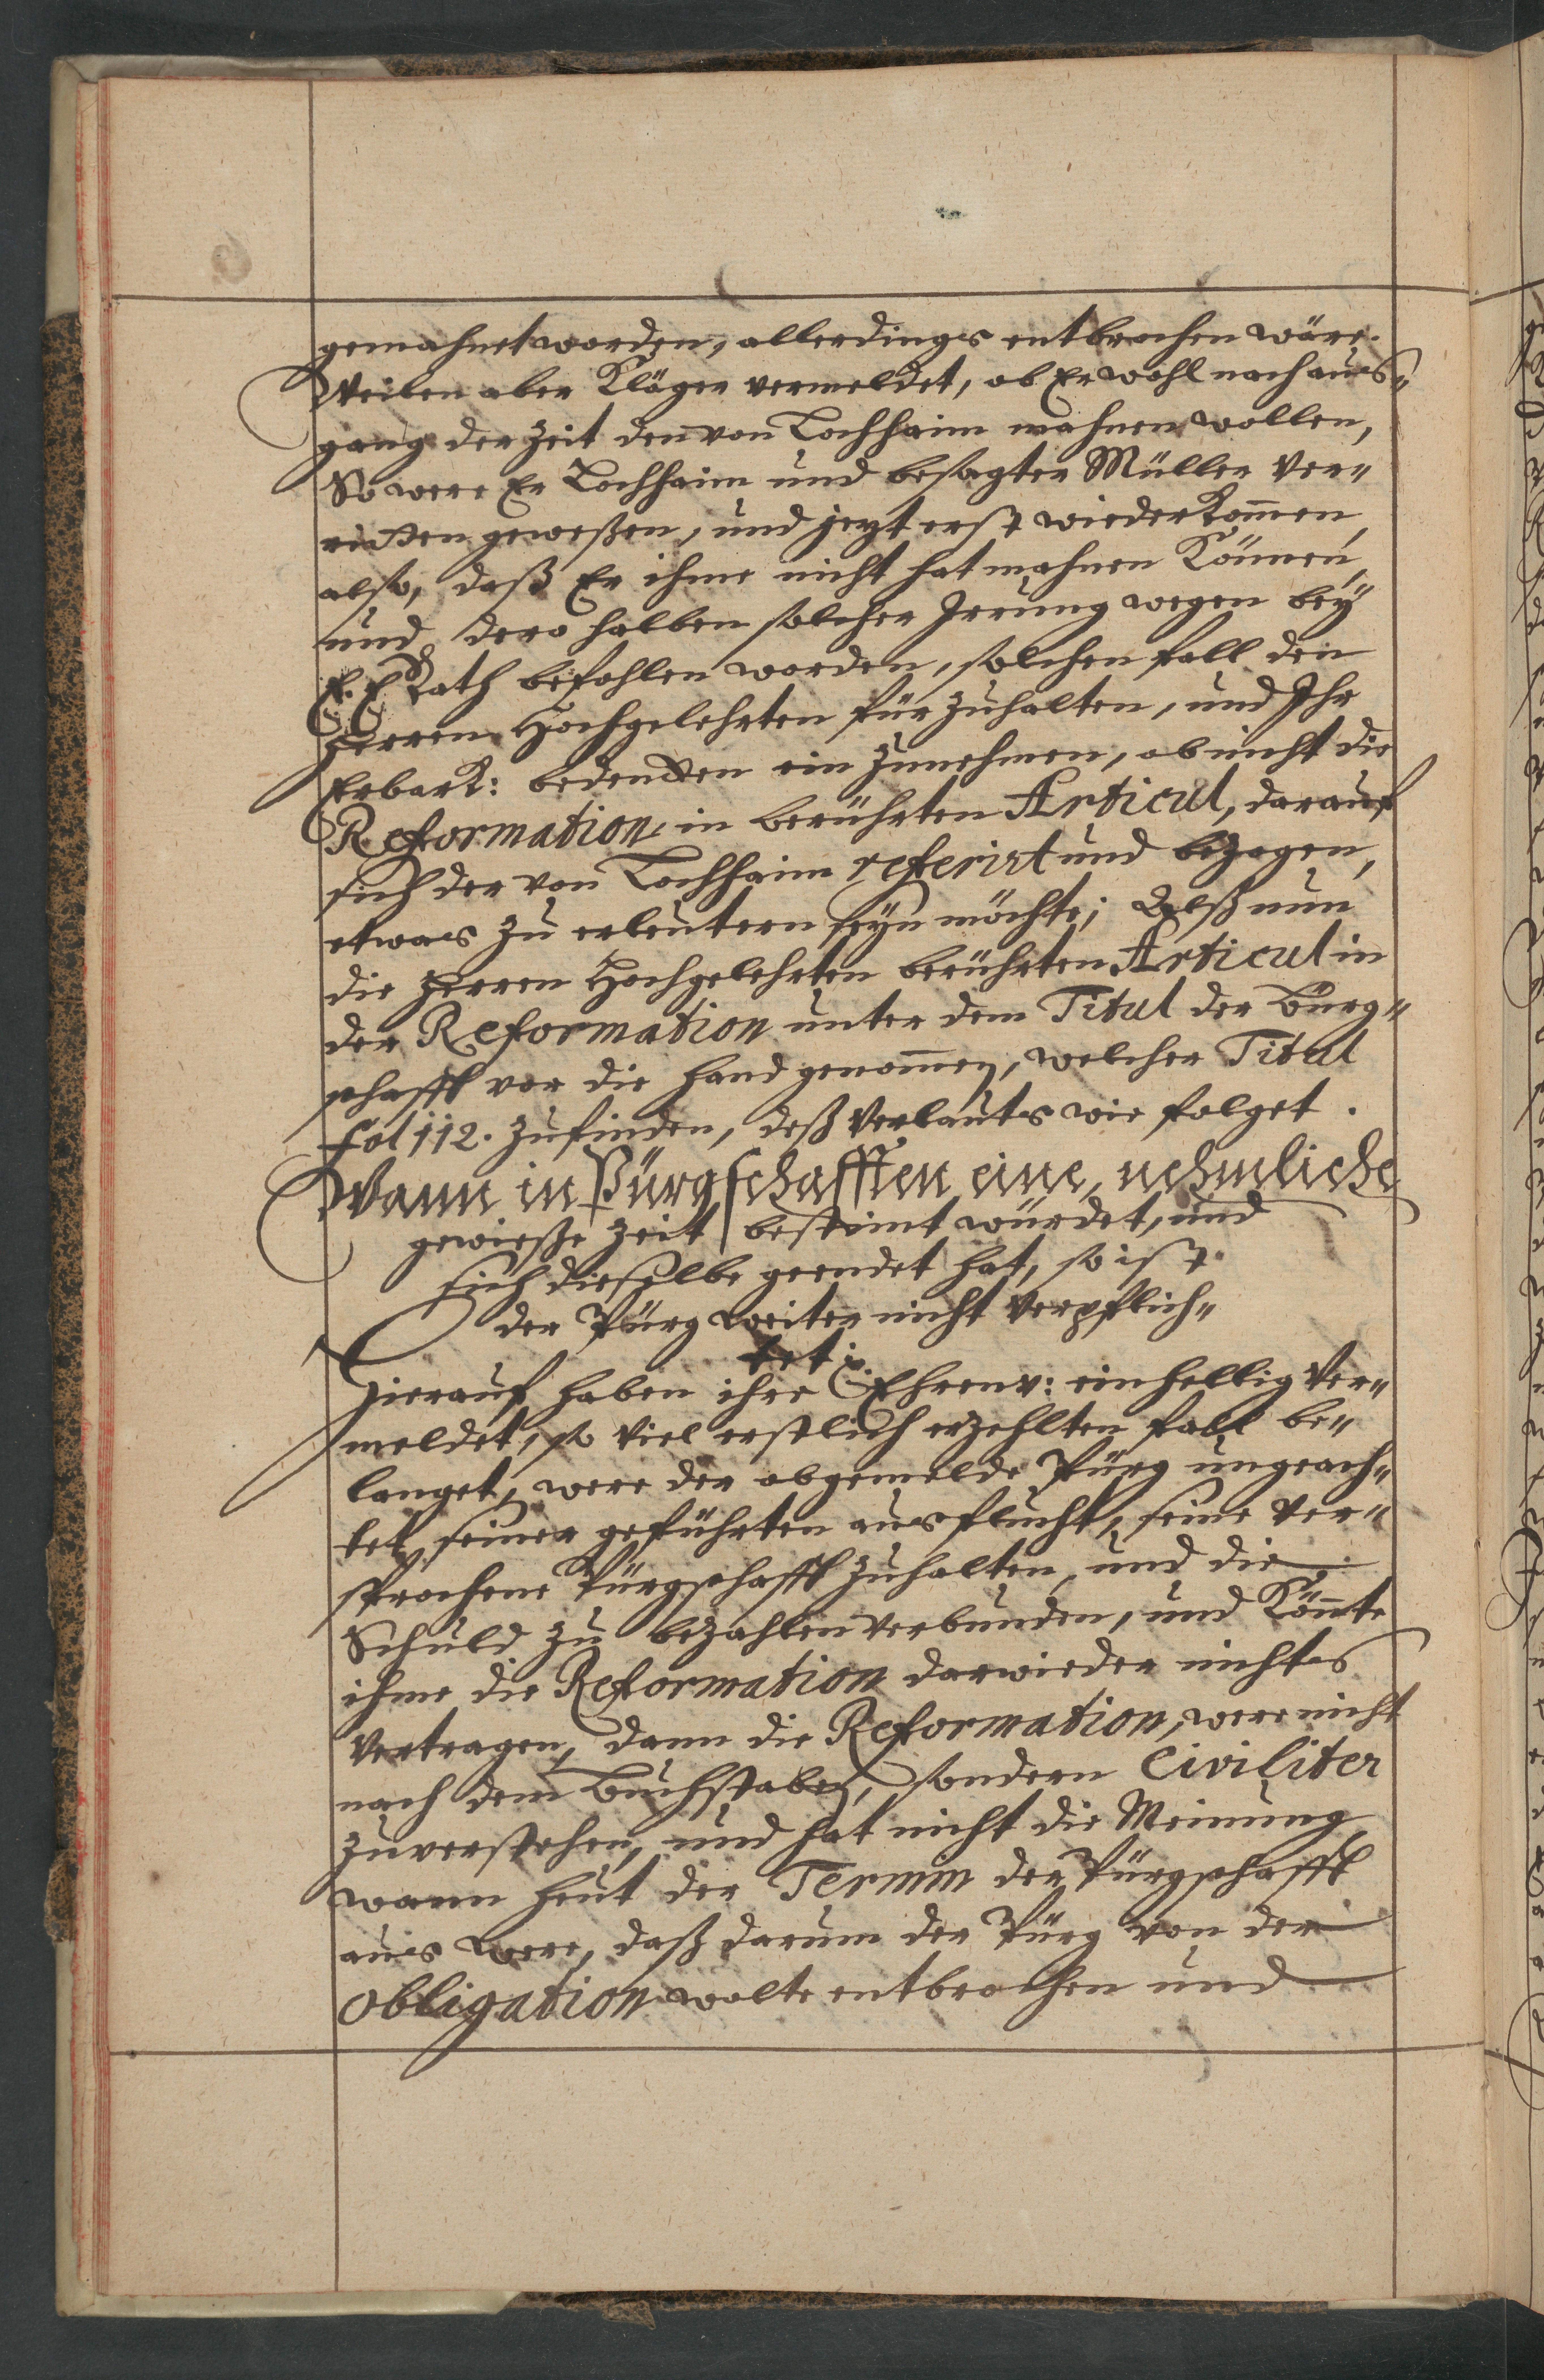 gemahnet worden, allerdings entbrochen wäre.
Weilen aber Kläger vermeldet, ob Er wohl nach aus-
gang der Zeit den von Lochheim mahnen wollen,
So were Er Lochheim und besagter Müller ver-
ritten geweßen, und jezt erst wiederkom̄en,
also, daß Er ihme nicht hat mahnen können,
und dero halben solcher Irrung wegen beÿ
E. E. Rath befohlen worden, solchen fall den
Herren Hochgelehrten fürzuhalten, und Ihr
Erbark: bedencken ein zunehmen, ob nicht die
Reformation in berührten Articul, darauf
sich der von Lochheim referirt und bezogen,
etwas zu erleutern seÿn möchte; Alß nun
die Herren Hochgelehrten berührten Articul in
der Reformation unter dem Titul der Bürg-
schafft vor die Hand genom̄en, welcher Titul
fol 112. zufinden, deß Verlauts wie folget.
Wann in Pürgschafften eine, nehmliche
gewieße Zeit bestimt würdet, und
sich dieselbe geendet hat, so ist
der Pürg weiter nicht verpflich-
tet.
Hierauf haben ihre Ehrenv: einhellig ver-
meldet, so viel erstlich erzehlten fall be-
langet, were der obgemelde Pürg ungeach-
tet seiner geführten ausflucht, seine ver-
sprochene Pürgschafft zuhalten, und die
Schuld zu bezahlen verbunden, und kön̄te
ihme die Reformation darwieder nichts
vertragen, dann die Reformation, were nicht
nach dem Buchstaben, sondern Civiliter
zuverstehen, und hat nicht die Meinung
wann heut der Termin der Pürgschafft
aus were, daß darum der Pürg von der
obligation wolte entbrochen und